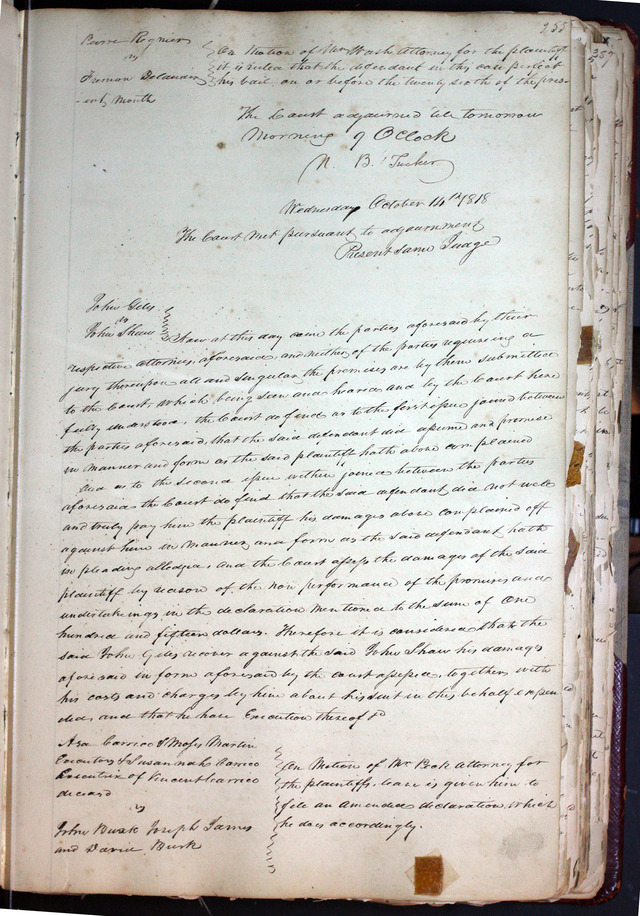 255
Pierre Regnier
vs
Freeman Delauder
On Motion of Mr Wash Attorney for the plaintiff
it is ruled that the defendant in this case perfect
his bail on or before the twenty sixth of the pres-
-ent Month
The Court adjourned till tomorrow
Morning 9 OClock
N. B. Tucker
Wednesday October 14th 1818
The Court met pursuant to adjournment
Present same Judge
John Geles
vs
John Shaw
Now at this day come the parties aforesaid by their
respective attornies aforesaid, and neither of the parties requiring a
jury thereupon all and singular the premises are by them submitted
to the Court, Which being seen and heard and by the Court here
fully understood, the Court do find as to the first issue joined between
the parties aforesaid, that the said defendant did assume and promise
in manner and form as the said plaintiff hath above complained
And as to the second issue within joined between the parties
aforesaid the Court do find that the said defendant did not well
and truly pay him the plaintiff his damages above complained off
against him in Manner and form as the said defendant hath
in pleading alledged. And the Court assess the damages of the said
plaintiff by reason of the non performance of the promises and
undertakings in the declaration mentioned to the sum of One
hundred and fifteen dollars. Therefore it is considered that the
said John Geles recover against the said John Shaw his damages
aforesaid in form aforesaid by the court assessed, together with
his costs and charges by him about his suit in this behalf expen
ded, and that he have Execution thereof &c
Asa Carrico & Moses Martin
Executors & Susannah Carrico
Executrix of Vincent Carrico
deceasd
vs
John Busk Joseph James
and David Busk
On Motion of Mr Beck Attorney for
the plaintiffs, leave is given him to
file an Amended declaration, Which
he does accordingly.